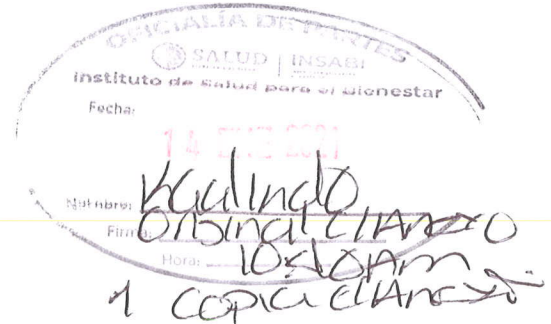 OFICIALÍA DE PARTES
SALUD | INSABI
Instituto de Salud para el Bienestar
Fecha:
14 ENE 2021
Nombre:
Firma: Original c/Anexo
Hora:
1 copia c/Anexo